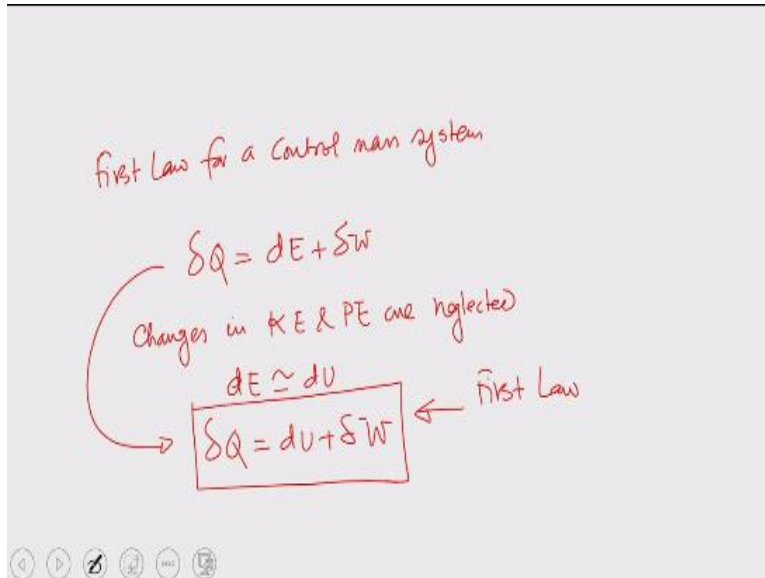 First Law for a Control mass system
δQ = dE + δW
Changes in KE & PE are neglected
dE ≃ dU
δQ = dU + δW ← First Law